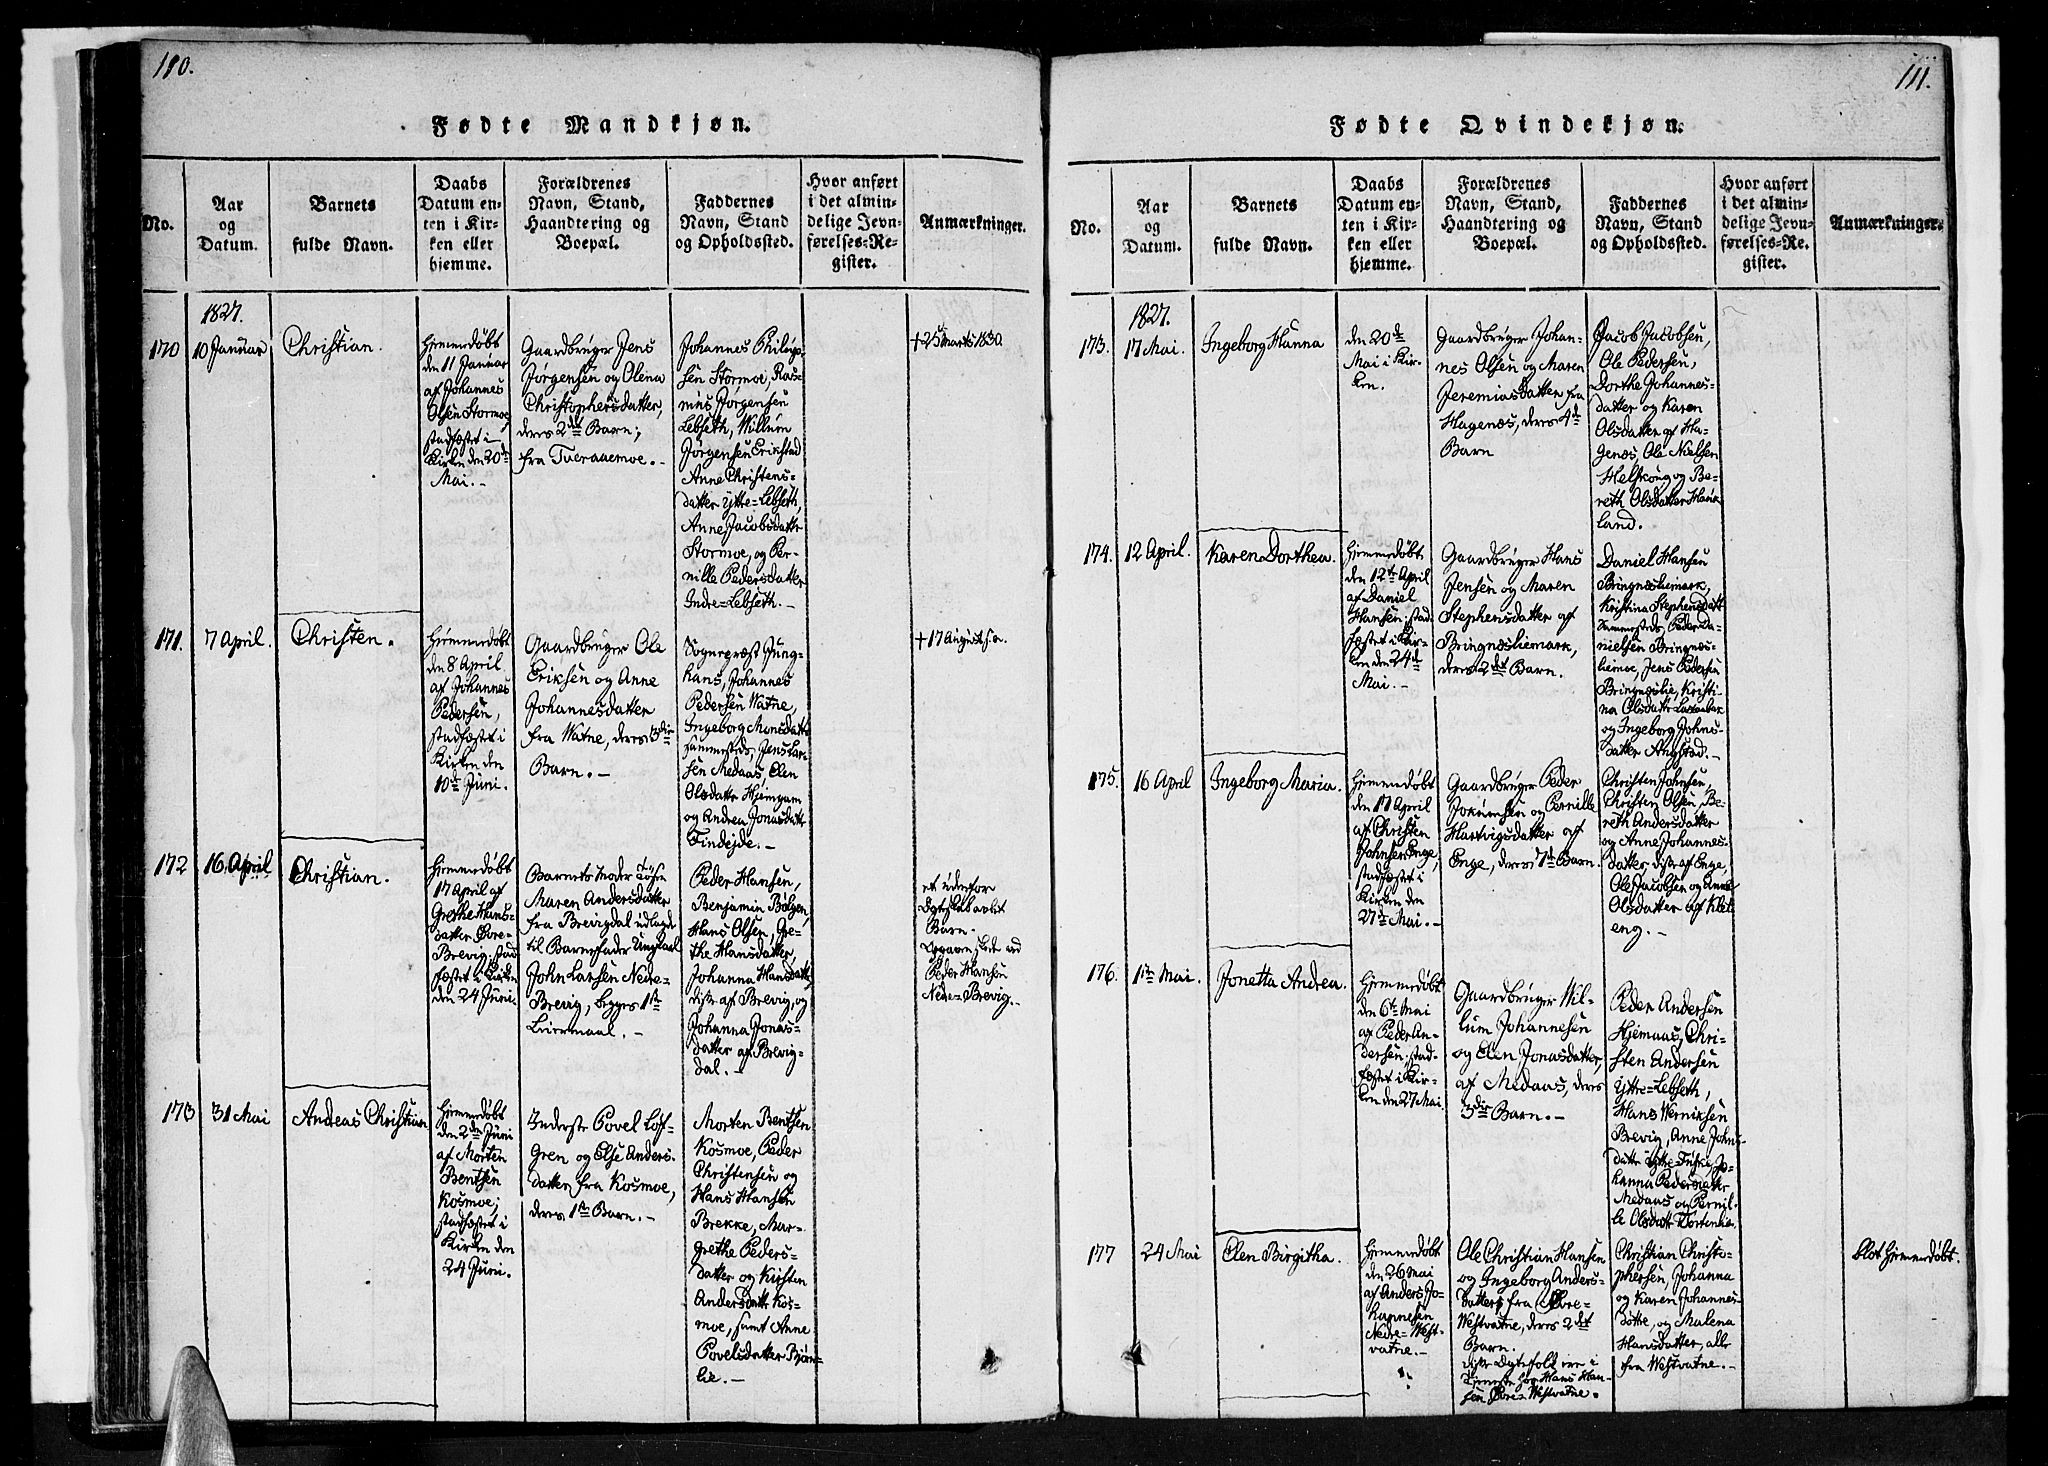 110.
Fødte Mandkjøn.
No.
Aar
og
Datum.
Barnets
fulde Navn.
Daabs
Datum en-
ten i Kir-
ken eller
hjemme.
Forældrenes
Navn, Stand,
Haandtering og
Boepæl.
Faddernes
Navn, Stand
og Opholdssted.
Hvor anført
i det almin-
delige Jevn-
førelses-Re-
gister.
Anmærkninger.
1827.
170
10 Januar
Christian.
Hjemmedøbt
den 11 Januar
af Johannes
Olsen Stormoe,
stadfæstet i
Kirken den 20de
Mai. -
Gaardbruger Jens
Jørgensen og Olena
Christophersdatter,
deres 2det Barn;
fra Tveraaemoe. -
Johannes Philip-
sen Stormoe, Ras-
mus Jørgensen
Lebseth, Willum
Jørgensen Erikstad
Anne Christens-
datter Ytte=Lebseth,
Anne Jacobsdatter
Stormoe, og Per-
nille Pedersdatter
Indre=Lebseth. -
+ 25 Marts 1830.
171.
7 April.
Christen.
Hjemmedøbt
den 8 April
af Johannes
Pedersen,
stadfæstet i
Kirken den
10de Juni. -
Gaardbruger Ole
Eriksen og Anne
Johannesdatter
fra Watne, deres 3die
Barn. -
Sognepræst Jung-
hans, Johannes
Pedersen Watne,
Ingeborg Monsdatt
sammesteds, Jens Lar-
sen Medaas, Elen
Olsdatt Hjemgam
og Andrea Jonasdatt
Findejde. -
+ 17 August s.a.
172
16 April
Christian.
Hjemmedøbt
17 April af
Grethe Hans-
datter Øvre-
Brevig; stad
fæstet i Kirken
den 24 Juni.
Barnets Moder Tøsen
Maren Andersdatter
fra Brevigdal udlagde
til Barnefader Ungkarl
John Larsen Nedre-
Brevig, begges 1ste
Leiermaal. -
Peder Hansen,
Benjamin Bølgen,
Hans Olsen, Gre-
the Hansdatter,
Johanna Hansdatt
disse af Brevig, og
Johanna Jonas-
datter af Brevig-
dal. -
et udenfor
Ægteskab avlet
Barn.
Opgaven skede ved
Peder Hansen
Nedre=Brevig. -
173
31 Mai
Andreas Christian
Hjemmedøbt
den 2den Juni
af Morten
Bentsen
Kosmoe;
stadfæstet i
Kirken den
24 Juni.
Inderste Povel Løf-
Gren og Else Anders-
datter fra Kosmoe,
deres 1ste Barn. -
Morten Bentsen
Kosmoe, Peder
Christensen og
Hans Hansen
Brekke, Mar-
grethe Peders-
datter og Kirsten
Andersdatt Kos-
moe, samt Anne
Povelsdatter Bjørn-
lie. -
111.
Fødte Qvindekjøn.
No.
Aar
og
Datum.
Barnets
fulde Navn.
Daabs
Datum en-
ten i Kir-
ken eller
hjemme.
Forældrenes
Navn, Stand,
Haandtering og
Boepæl.
Faddernes
Navn, Stand
og Opholdssted.
Hvor anført
i det almin-
delige Jevn-
førelses-Re-
gister.
Anmærkninger.
1827.
173.
17 Mai.
Ingeborg Hanna
den 20de
Mai i Kir-
ken.
Gaardbruger Johan-
nes Olsen og Maren
Jeremiasdatter fra
Hagenæs, deres 4de
Barn
Jacob Jacobsen,
Ole Pedersen,
Dorthe Johannes-
datter og Karen
Olsdatter af Ha-
genæs, Ole Nielsen
og Be-
reth Olsdatter
land.
174.
12 April.
Karen Dorthea.
Hjemmedøbt
den 12te April
af Daniel
Hansen; stad-
fæstet i Kir-
ken den 24de
Mai. -
Gaardbruger Hans
Jensen og Maren
Stephensdatter af
Bringnesliemark,
deres 2det Barn.
Daniel Hansen
Bringnesliemark,
Kristina Stephensdatt
sammesteds, Peder Da-
nielsen Bringnes-
liemoe, Jens Pedersen
Bringneslie, Kristi-
na Olsdatt
og Ingeborg Johns-
datter Angstad. -
175.
16 April
Ingeborg Maria.
Hjemmedøbt
den 17 April
af Christen
Johnsen Enge,
stadfæstet i
Kirken den
27de Mai. -
Gaardbruger Peder
Jokumsen og Pernille
Hartvigsdatter af
Enge, deres 7de Barn.
Christen Johnsen,
Christen Olsen, Be-
reth Andersdatter
og Anne Johannes-
datter, disse af Enge,
Ole Jacobsen og Anne
Olsdatter af Klet-
eng. -
176.
1ste Mai.
Jonetta Andrea.
Hjemmedøbt
den 6te Mai
af Peder An-
dersen; stad-
fæstet i Kir-
ken den 27 Mai.
Gaardbruger Wil-
lum Johannesen
og Elen Jonasdatter,
af Medaas, deres
3die Barn. -
Peder Andersen
Hjemaas, Chri-
sten Andersen
Ytte=Lebseth,
Hans Werniksen
Brevig, Anne Johns-
datter Ytte=Fiske, Jo-
hanna Pedersdatter
Medaas og Pernil-
le Olsdatt Tortenlie.
177
24 Mai
Elen Birgitha.
Hjemmedøbt
den 26 Mai
af Anders Jo-
hannesen
Nedre=West-
vatne. -
Ole Christian Hansen
og Ingeborg Anders-
datter fra Øvre-
Westvatne, deres 2det
Barn.
disse Ægtefolk ere i
Tjeneste hos Hans Han-
sen Øvre=Westvatne.
Christian Christo-
phersen, Johanna
og Karen Johannes-
døttre, og Malena
Hansdatter, alle
fra Westvatne. -
blot Hjemmedøbt.